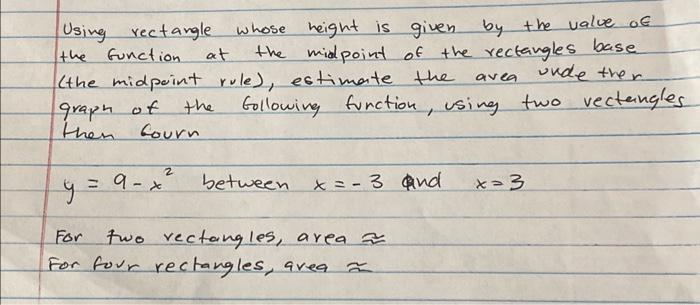 Using rectangle whose height is given by the value of
the function at the midpoint of the rectangles base
(the midpoint rule), estimate the area unde ther
graph of the following function, using two rectangles
then fourn
y = 9 - x² between x = - 3 and x = 3
For two rectangles, area ≈
For four rectangles, area ≈